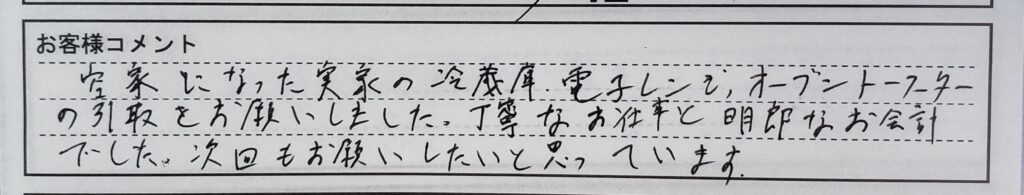 お客様コメント
空家となった実家の冷蔵庫、電子レンジ、オーブントースター
の引取をお願いしました。丁寧なお仕事と明郎なお会計
でした。次回もお願いしたいと思っています。